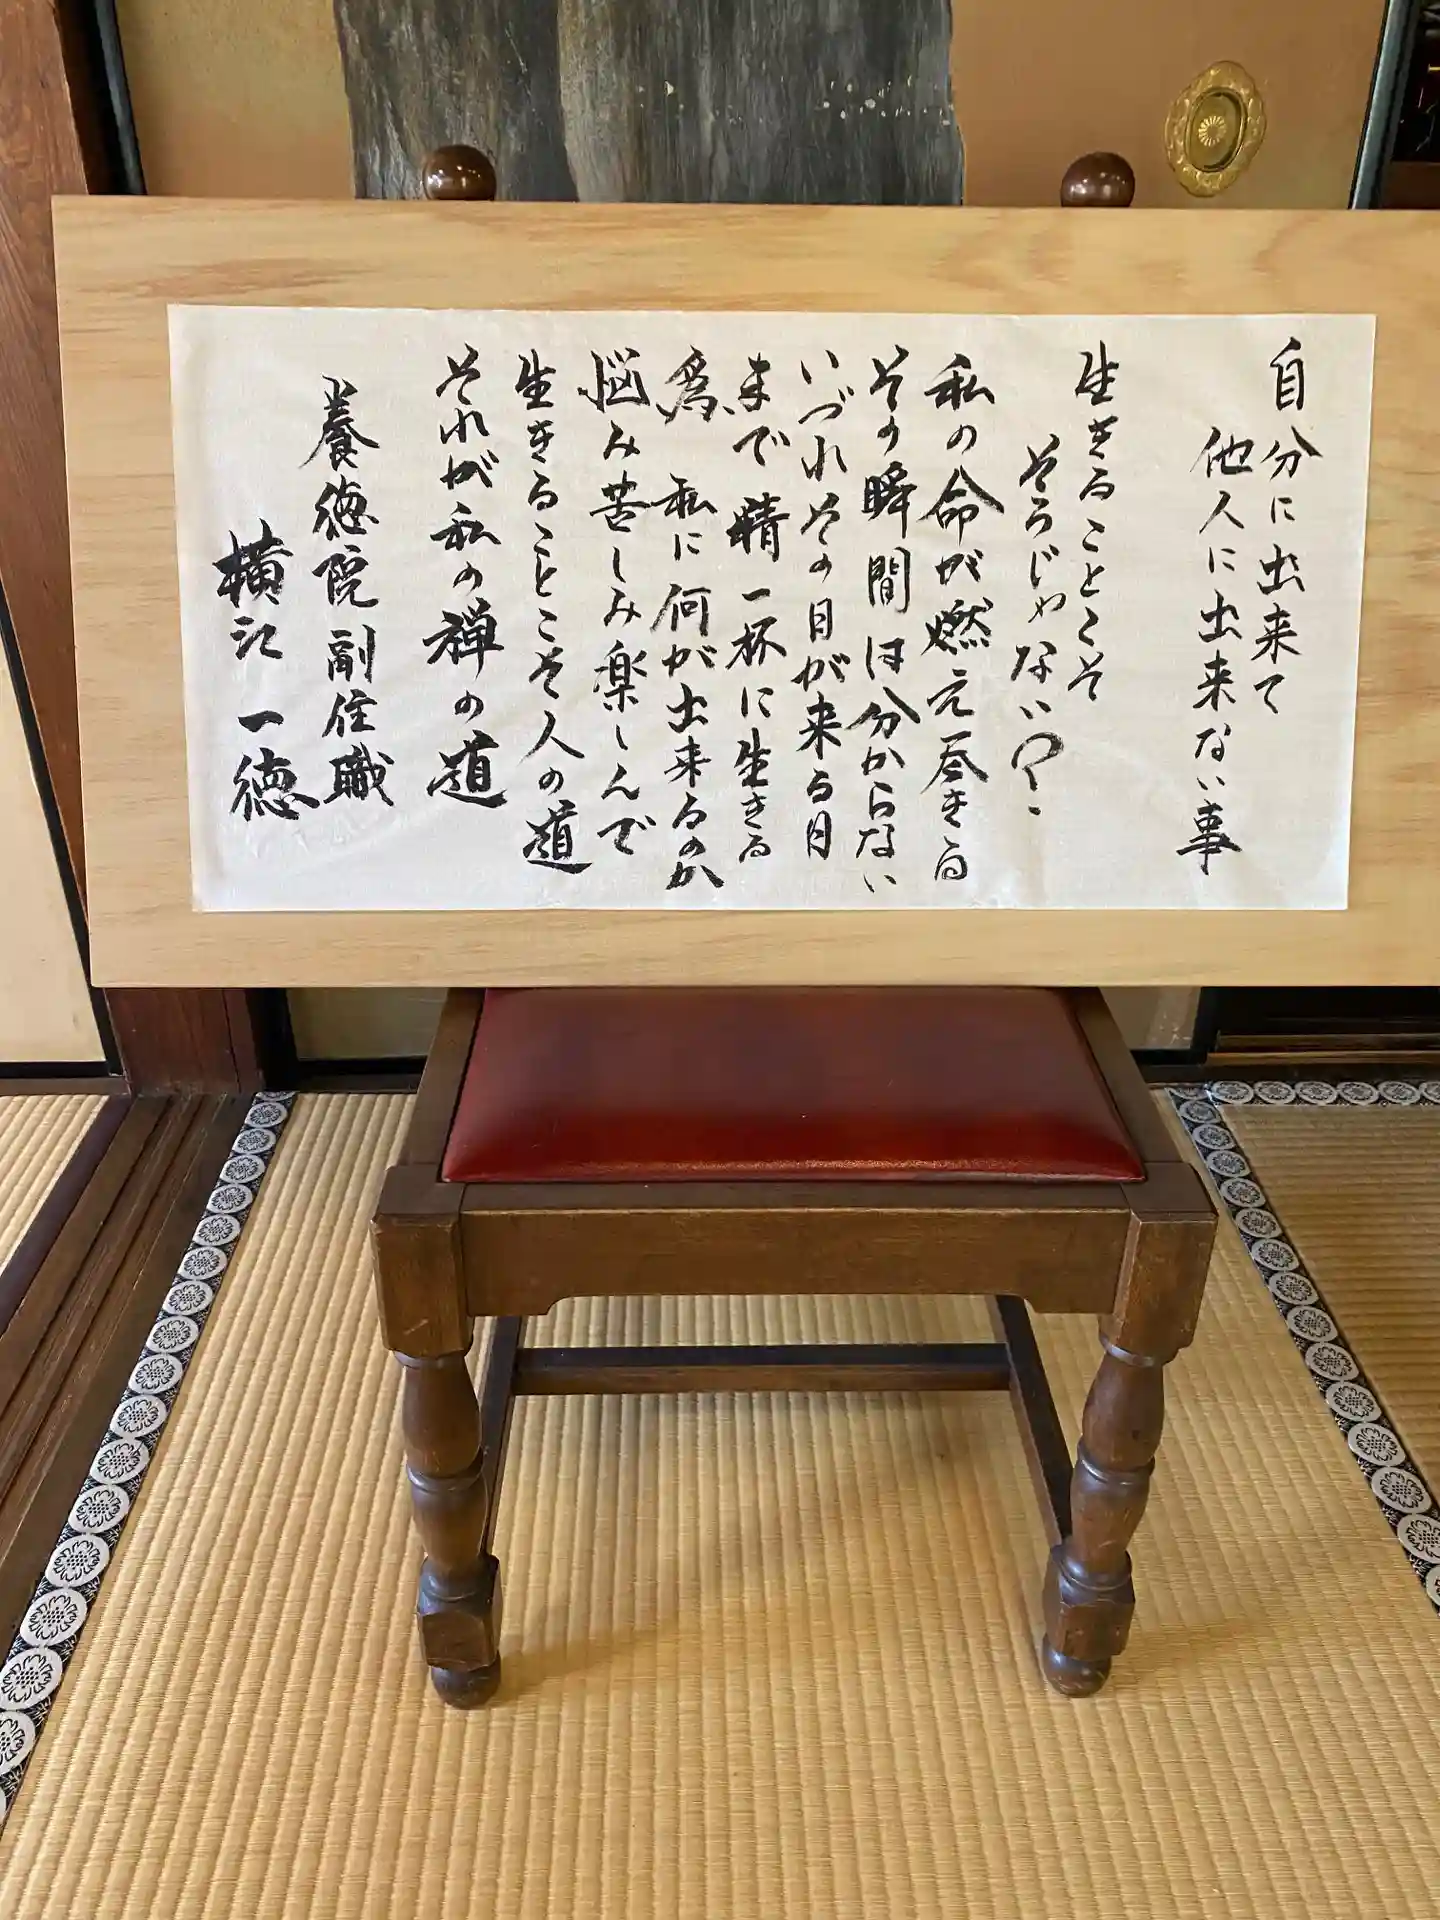 自分に出来て
他人に出来ない事
生きることこそ
そうじゃないか
私の命が燃え尽きる
その瞬間は分からない
いづれその日が来る日
まで精一杯に生きる
為 私に何が出来るのか
悩み苦しみ楽しんで
生きることこそ人の道
それが私の禅の道
養徳院副住職
横江一徳